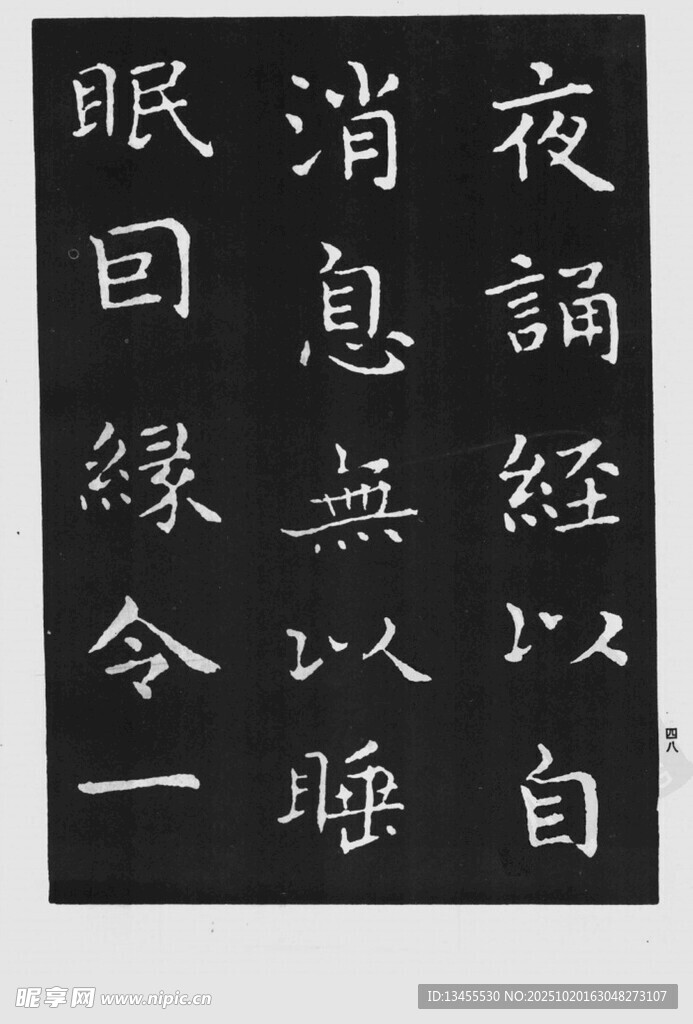 夜誦經以自
消息無以睡
眠囙緣令一
四八
昵享网 www.nipic.cn
ID:13455530 NO:20251020163048273107